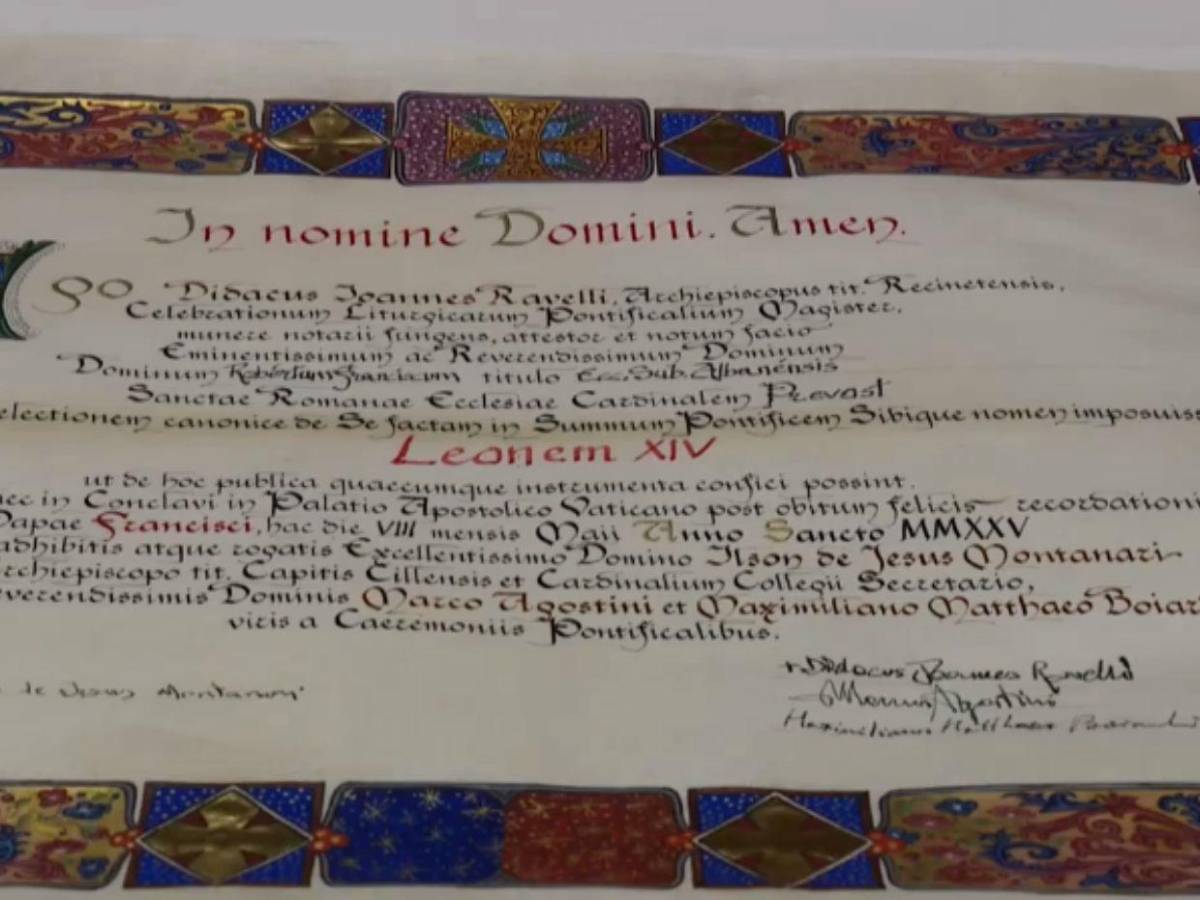 In nomine Domini. Amen.
Ego Didacus Ioannes Ravelli, Archiepiscopus tit. Recinetensis,
Celebrationum Liturgicarum Pontificalium Magister,
munere notarii fungens, attestor et notum facio
Eminentissimum ac Reverendissimum Dominum
Dominum Robertum Franciscum titulo Ecc. Sub. Albanensis
Sanctae Romanae Ecclesiae Cardinalem Prevost
electionem canonice de Se factam in Summum Pontificem Sibique nomen imposuiss
Leonem XIV
ut de hoc publica quaecumque instrumenta confici possint.
aec in Conclavi in Palatio Apostolico Vaticano post obitum felicis recordationi
Papae Francisci, hac die VIII mensis Maii Anno Sancto MMXXV
adhibitis atque rogatis Excellentissimo Domino Ilson de Jesus Montanari
rchiepiscopo tit. Capitis Cillensis et Cardinalium Collegii Secretario,
everendissimis Dominis Marco Agostini et Maximiliano Matthaeo Boiar
viris a Caeremoniis Pontificalibus.
de Jesus Montanari
+ Didacus Ioannes Ravelli
Marcus Agostini
Maximilianus Matthaeus